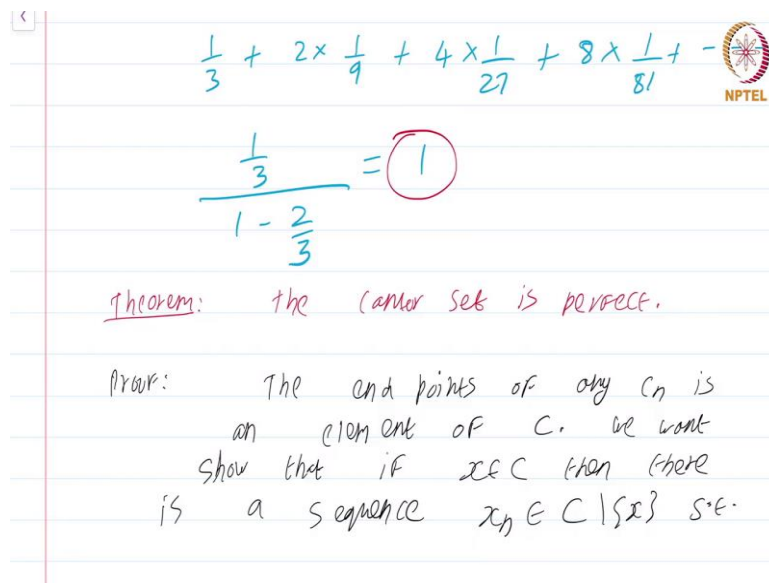 1/3 + 2 × 1/9 + 4 × 1/27 + 8 × 1/81 + -
NPTEL
(1/3) / (1 - 2/3) = 1
Theorem: the Cantor set is perfect.
Proof: The end points of any Cn is
an element of C. we want
show that if x ∈ C then there
is a sequence xn ∈ C \ {x} s.t.